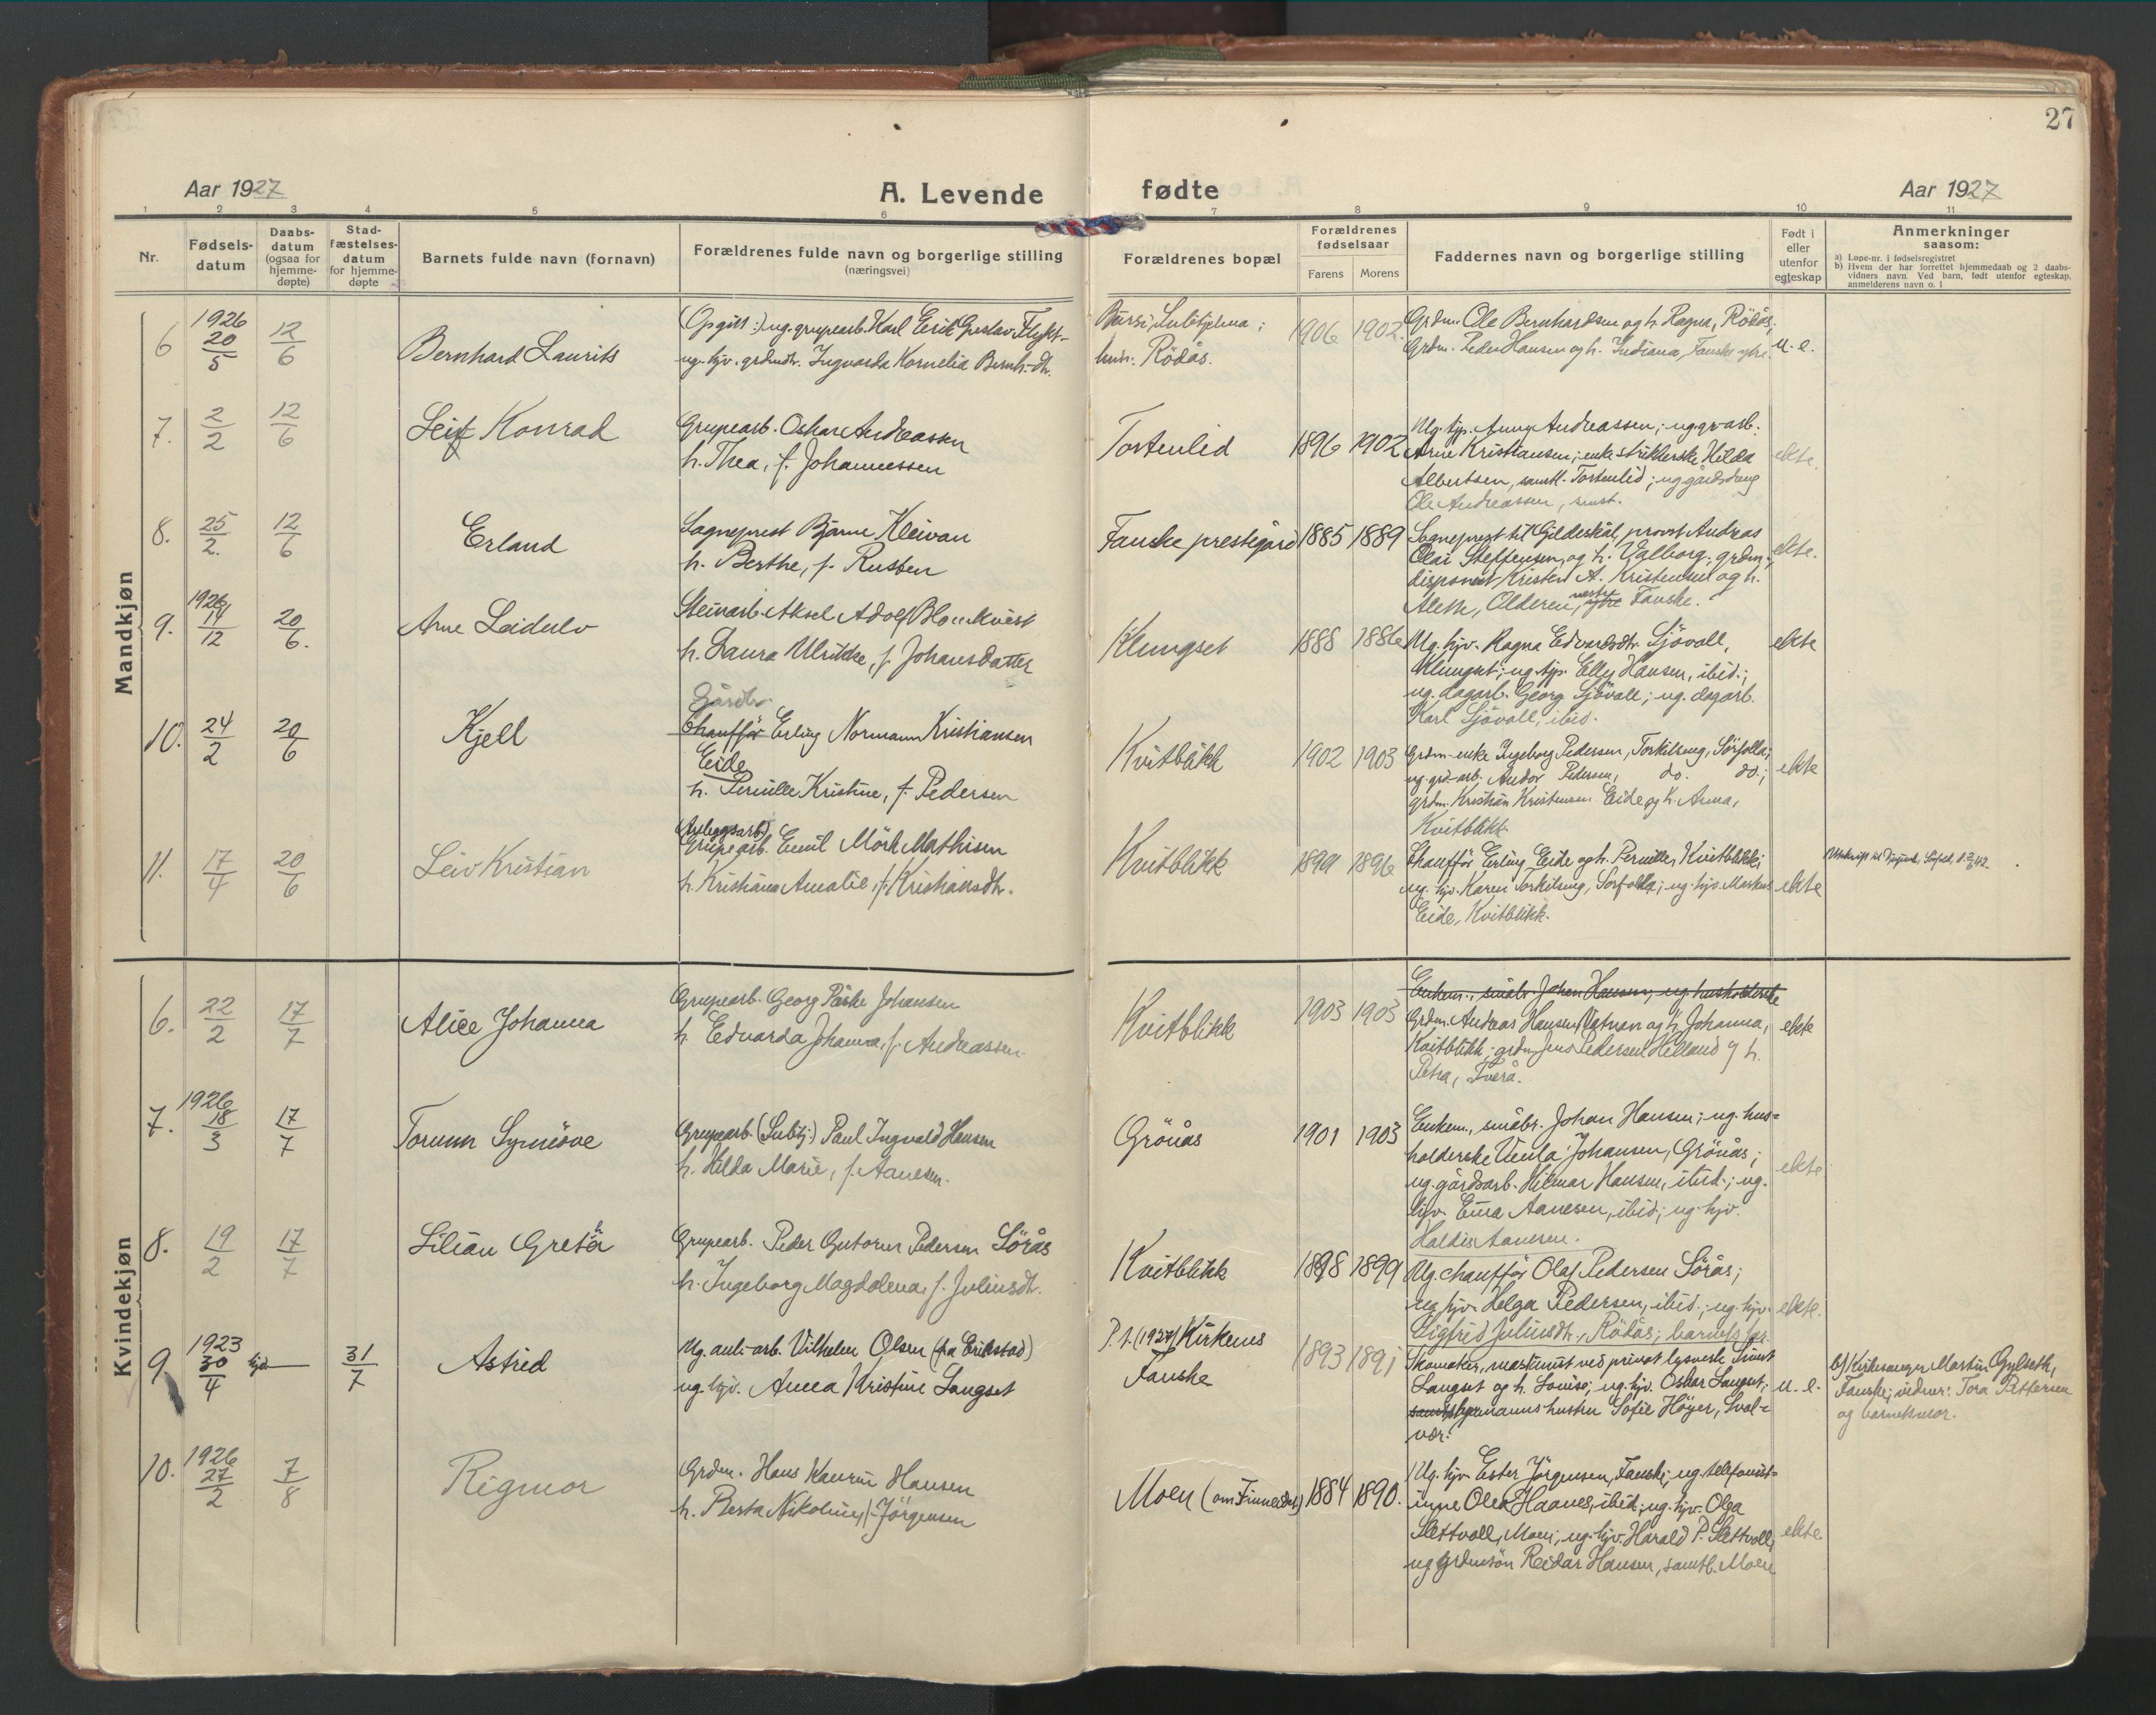 27
Aar 1927
A. Levende fødte
Aar 1927
1 2 3 4 5 6 7 8 9 10 11
Nr.
Fødsels-
datum
Daabs-
datum
(ogsaa for
hjemme-
døpte)
Stad-
fæstelses-
datum
for hjemme-
døpte
Barnets fulde navn (fornavn)
Forældrenes fulde navn og borgerlige stilling
(næringsvei)
Forældrenes bopæl
Forældrenes
fødselsaar
Farens Morens
Faddernes navn og borgerlige stilling
Født i
eller
utenfor
egteskap
Anmerkninger
saasom:
a) Løpe-nr. i fødselsregistret
b) Hvem der har forrettet hjemmedaab og 2 daabs-
vidners navn. Ved barn, født utenfor egteskap,
anmelderens navn o. l
Mandkjøn
6
1926
20/5
12/6
Bernhard Laurits
(Opgitt:) ug. grupearb. Karl Erik Gustav Flykt-
ug. hjv. grdmdtr. Ingvarda Kornelia Bernh.-dtr.
Bursi, Sulitjelma;
hun: Rödås.
1906 1902.
Grdm. Ole Bernhardsen og h. Ragna, Rödås;
Grdm. Peder Hansen og h. Indiana, Fauske ytre.
u. e.
7.
2/2
12/6
Leif Konrad
Grupearb. Oskar Andreassen
h. Thea, f. Johannessen
Tortenlid
1896 1902
Ug. tjp. Anny Andreassen; ug. gr-arb.
Arne Kristiansen; enke strikkerske Hilda
Albertsen, samtl. Tortenlid; ug gårdsdreng
Ole Andreassen, smst.
ekte.
8.
25/2.
12/6
Erland
Sogneprest Bjarne Kleivan
h. Berthe, f. Rusten
Fauske prestegård
1885 1889
Sogneprest til Gildeskål, provst Andreas
Olai Steffensen, og h. Valborg; grdm.,
disponent Kristen A. Kristensen og h.
Alette, Olderen, vestre ytre Fauske.
ekte.
9.
1926
14/12
20/6.
Arne Leidulv
Steinarb. Aksel Adolf Blomkvist
h. Laura Ulrikke, f. Johansdatter
Klungset
1888 1886
Ug. hjv. Ragna Edvardsdtr. Sjövoll,
Klungset; ug. tjp. Elly Hansen, ibid.;
ug. dagarb. Georg Sjövoll; ug. dagarb.
Karl Sjövoll, ibid.
ekte
10.
24/2
20/6
Kjell
Gårdbr.
Chaufför Erling Normann Kristiansen
Eide
h. Pernille Kristine, f. Pedersen
Kvitblikk
1902 1903
Grdm-enke Ingeborg Pedersen, Torkilseng, Sörfolla;
ug. grd.-arb. Andor Pedersen, do. do.;
grdm. Kristian Kristensen Eide og h. Anna,
Kvitblikk.
ekte
11.
17/4
20/6
Leiv Kristian
(Anleggsarb)
Grupearb. Emil Mörk Mathisen
h. Kristiana Amalie, f. Kristiansdtr.
Kvitblikk
1899 1896
Chaufför Erling Eide og h. Pernille, Kvitblikk;
ug. hjv. Karen Torkilseng, Sörfolda; ug. hjv. Markus
Eide, Kvitblikk.
ekte
Kvindekjøn
6.
22/2
17/7
Alice Johanna
Grupearb. Georg Påske Johansen
h. Edvarda Johanna, f. Andreassen.
Kvitblikk
1903 1903
Enkem., småbr. Johan Hansen, ug. husholderske
Grdm. Andreas Hansen Vatnan og h. Johanna,
Kvitblikk; grdm. Jens Pedersen Helland og h.
Petra, Tverå.
ekte
7.
1926
18/3
17/7
Torunn Synnöve
Grupearb. (Sulitj.) Paul Ingvald Hansen
h. Hilda Marie, f. Aanesen.
Grönås
1901 1903
Enkem., småbr. Johan Hansen; ug. hus-
holderske Johansen, Grönås;
ug. gårdsarb. Hilmar Hansen, ibid.; ug.
hjv. Aanesen, ibid; ug. hjv.
Haldis Aanesen.
ekte
8.
19/2
17/7
Lilian Gretha
Grupearb. Peder Gutorm Pedersen Sörås
h. Ingeborg Magdalena, f. Juliusdtr.
Kvitblikk
1898 1899
Ug. chaufför Olaf Pedersen Sörås;
ug. hjv. Helga Pedersen, ibid.; ug. hjv.
Sigfrid Juliusdtr., Rödås; barnets far.
ekte.
9.
1923
30/4
hjd
31/7
Astrid
Ug. anl-arb. Vilhelm Olsen (fra Erikstad)
ug. hjv. Anna Kristine Langset
P. t. (1927) Kirkenes
Fauske
1893 1891
Skomaker, maskinist ved privat lysverk Simst
Langset og h. Lovise; ug. hjv. Oskar Langset;
hustru Sofie Höyer, Svol-
vær.
u. e.
b) Kirkesanger Martin Gylseth,
Fauske; vidner: Tora Pettersen
og barnets mor.
10.
1926
27/2
7/8
Rigmor
Grdm. Hans Kaurin Hansen
h. Berta Nikoline, f. Jörgensen
Moen (om Finneidet)
1884 1890.
Ug. hjv. Ester Jörgensen, Fauske; ug. telefonist-
inne Olea Haanes, ibid; ug. hjv. Olga
Slettvoll, Moen; ug. hjv. Harald P. Slettvoll;
ug grdmsön Reidar Hansen, samtl. Moen
ekte